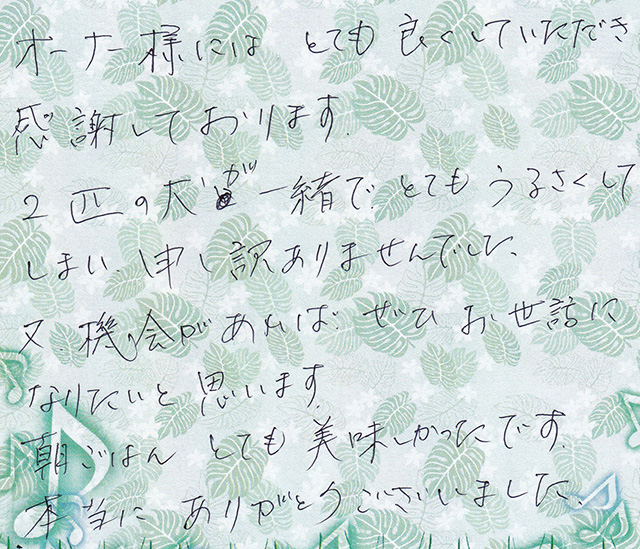 オーナー様には とても 良くしていただき
感謝しております.
2匹の犬が一緒で、とてもうるさくして
しまい、申し訳ありませんでした、
又、機会があれば、ぜひ お世話に
なりたいと思います.
朝ごはん とても 美味しかったです.
本当に ありがとうございました、